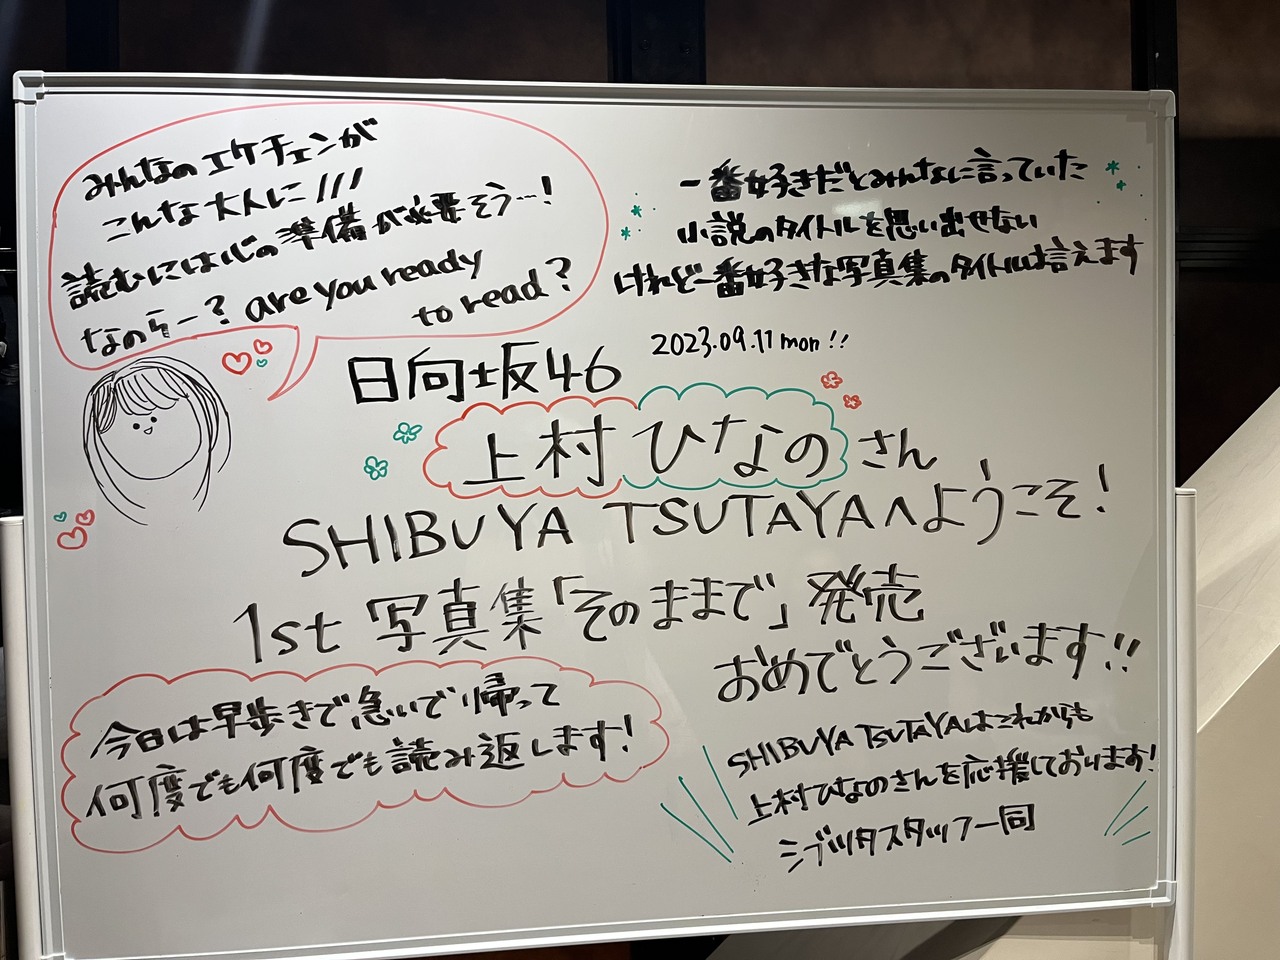 みんなのエケチェンが
こんな大人に///
読むには心の準備が必要そう…!
なのらー? are you ready
to read?
一番好きだとみんなに言っていた
小説のタイトルを思い出せない
けれど一番好きな写真集のタイトルは言えます
2023.09.11 mon!!
日向坂46
上村ひなのさん
SHIBUYA TSUTAYAへようこそ!
1st 写真集「そのままで」発売
おめでとうございます!!
今日は早歩きで急いで帰って
何度でも何度でも読み返します!
SHIBUYA TSUTAYAはこれからも
上村ひなのさんを応援しております!
シブツタスタッフ一同